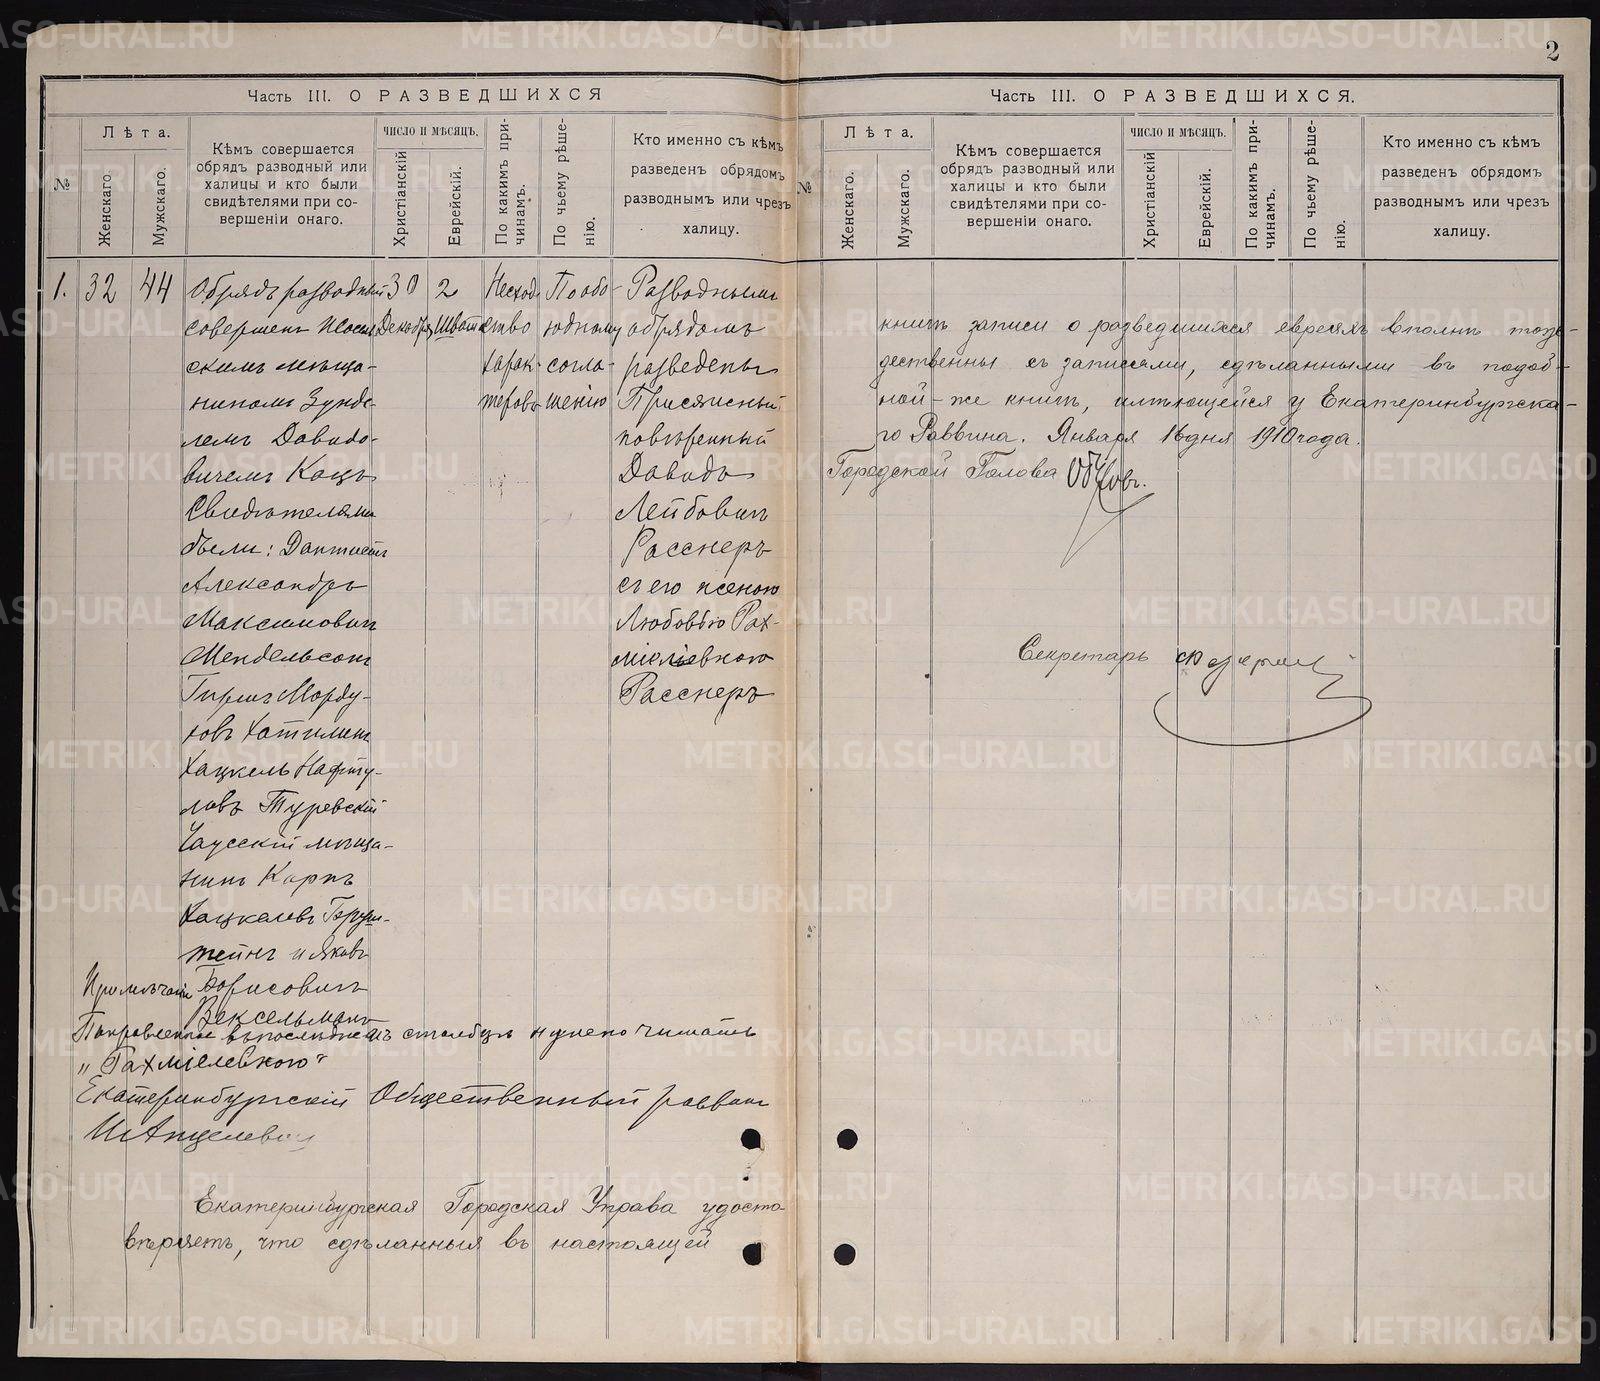 2
Часть III. О РАЗВЕДШИХСЯ
№
Лѣта.
Женскаго.
Мужскаго.
Кѣмъ совершается
обрядъ разводный или
халицы и кто были
свидѣтелями при со-
вершеніи онаго.
ЧИСЛО И МѢСЯЦЪ.
Христіанскій
Еврейскій.
По какимъ при-
чинамъ.
По чьему рѣше-
нію.
Кто именно съ кѣмъ
разведенъ обрядомъ
разводнымъ или чрезъ
халицу.
1.
32
44
Обрядъ разводный
совершенъ
скимъ мѣща-
ниномъ Зунде-
лемъ Давидо-
вичемъ Кацъ
Свидѣтелями
были: Дантистъ
Александръ
Максимовичъ
Мендельсонъ
Гиршъ Морду-
ховъ Хотимскій
Хацкель Нафту-
ловъ Туревскій
Чаусскій мѣща-
нинъ Карпъ
Хацкелевъ Бруш-
тейнъ и Яковъ
Борисовичъ
Вексельманъ
30
Декабря
2
Шватъ
Несход-
ство
харак-
теровъ
По обо-
юдному
согла-
шенію
Разводнымъ
обрядомъ
разведены
Присяжный
повѣренный
Давидъ
Лейбовичъ
Расснеръ
съ его женою
Любовью Рах-
міелевною
Расснеръ
Примѣчаніе
Поправленное въ послѣднемъ столбцѣ нужно читать
„Рахміелевною"
Екатеринбургскій Общественный раввинъ
Екатеринбургская Городская Управа удосто-
вѣряетъ, что сдѣланныя въ настоящей
Часть III. О РАЗВЕДШИХСЯ.
№
Лѣта.
Женскаго.
Мужскаго.
Кѣмъ совершается
обрядъ разводный или
халицы и кто были
свидѣтелями при со-
вершеніи онаго.
ЧИСЛО И МѢСЯЦЪ.
Христіанскій
Еврейскій.
По какимъ при-
чинамъ.
По чьему рѣше-
нію.
Кто именно съ кѣмъ
разведенъ обрядомъ
разводнымъ или чрезъ
халицу.
книгѣ записи о разведшихся евреяхъ вполнѣ тож-
дественны съ записями, сдѣланными въ подоб-
ной-же книгѣ, имѣющейся у Екатеринбургска-
го Раввина. Января 16 дня 1910 года.
Городской Голова
Секретарь
METRIKI.GASO-URAL.RU